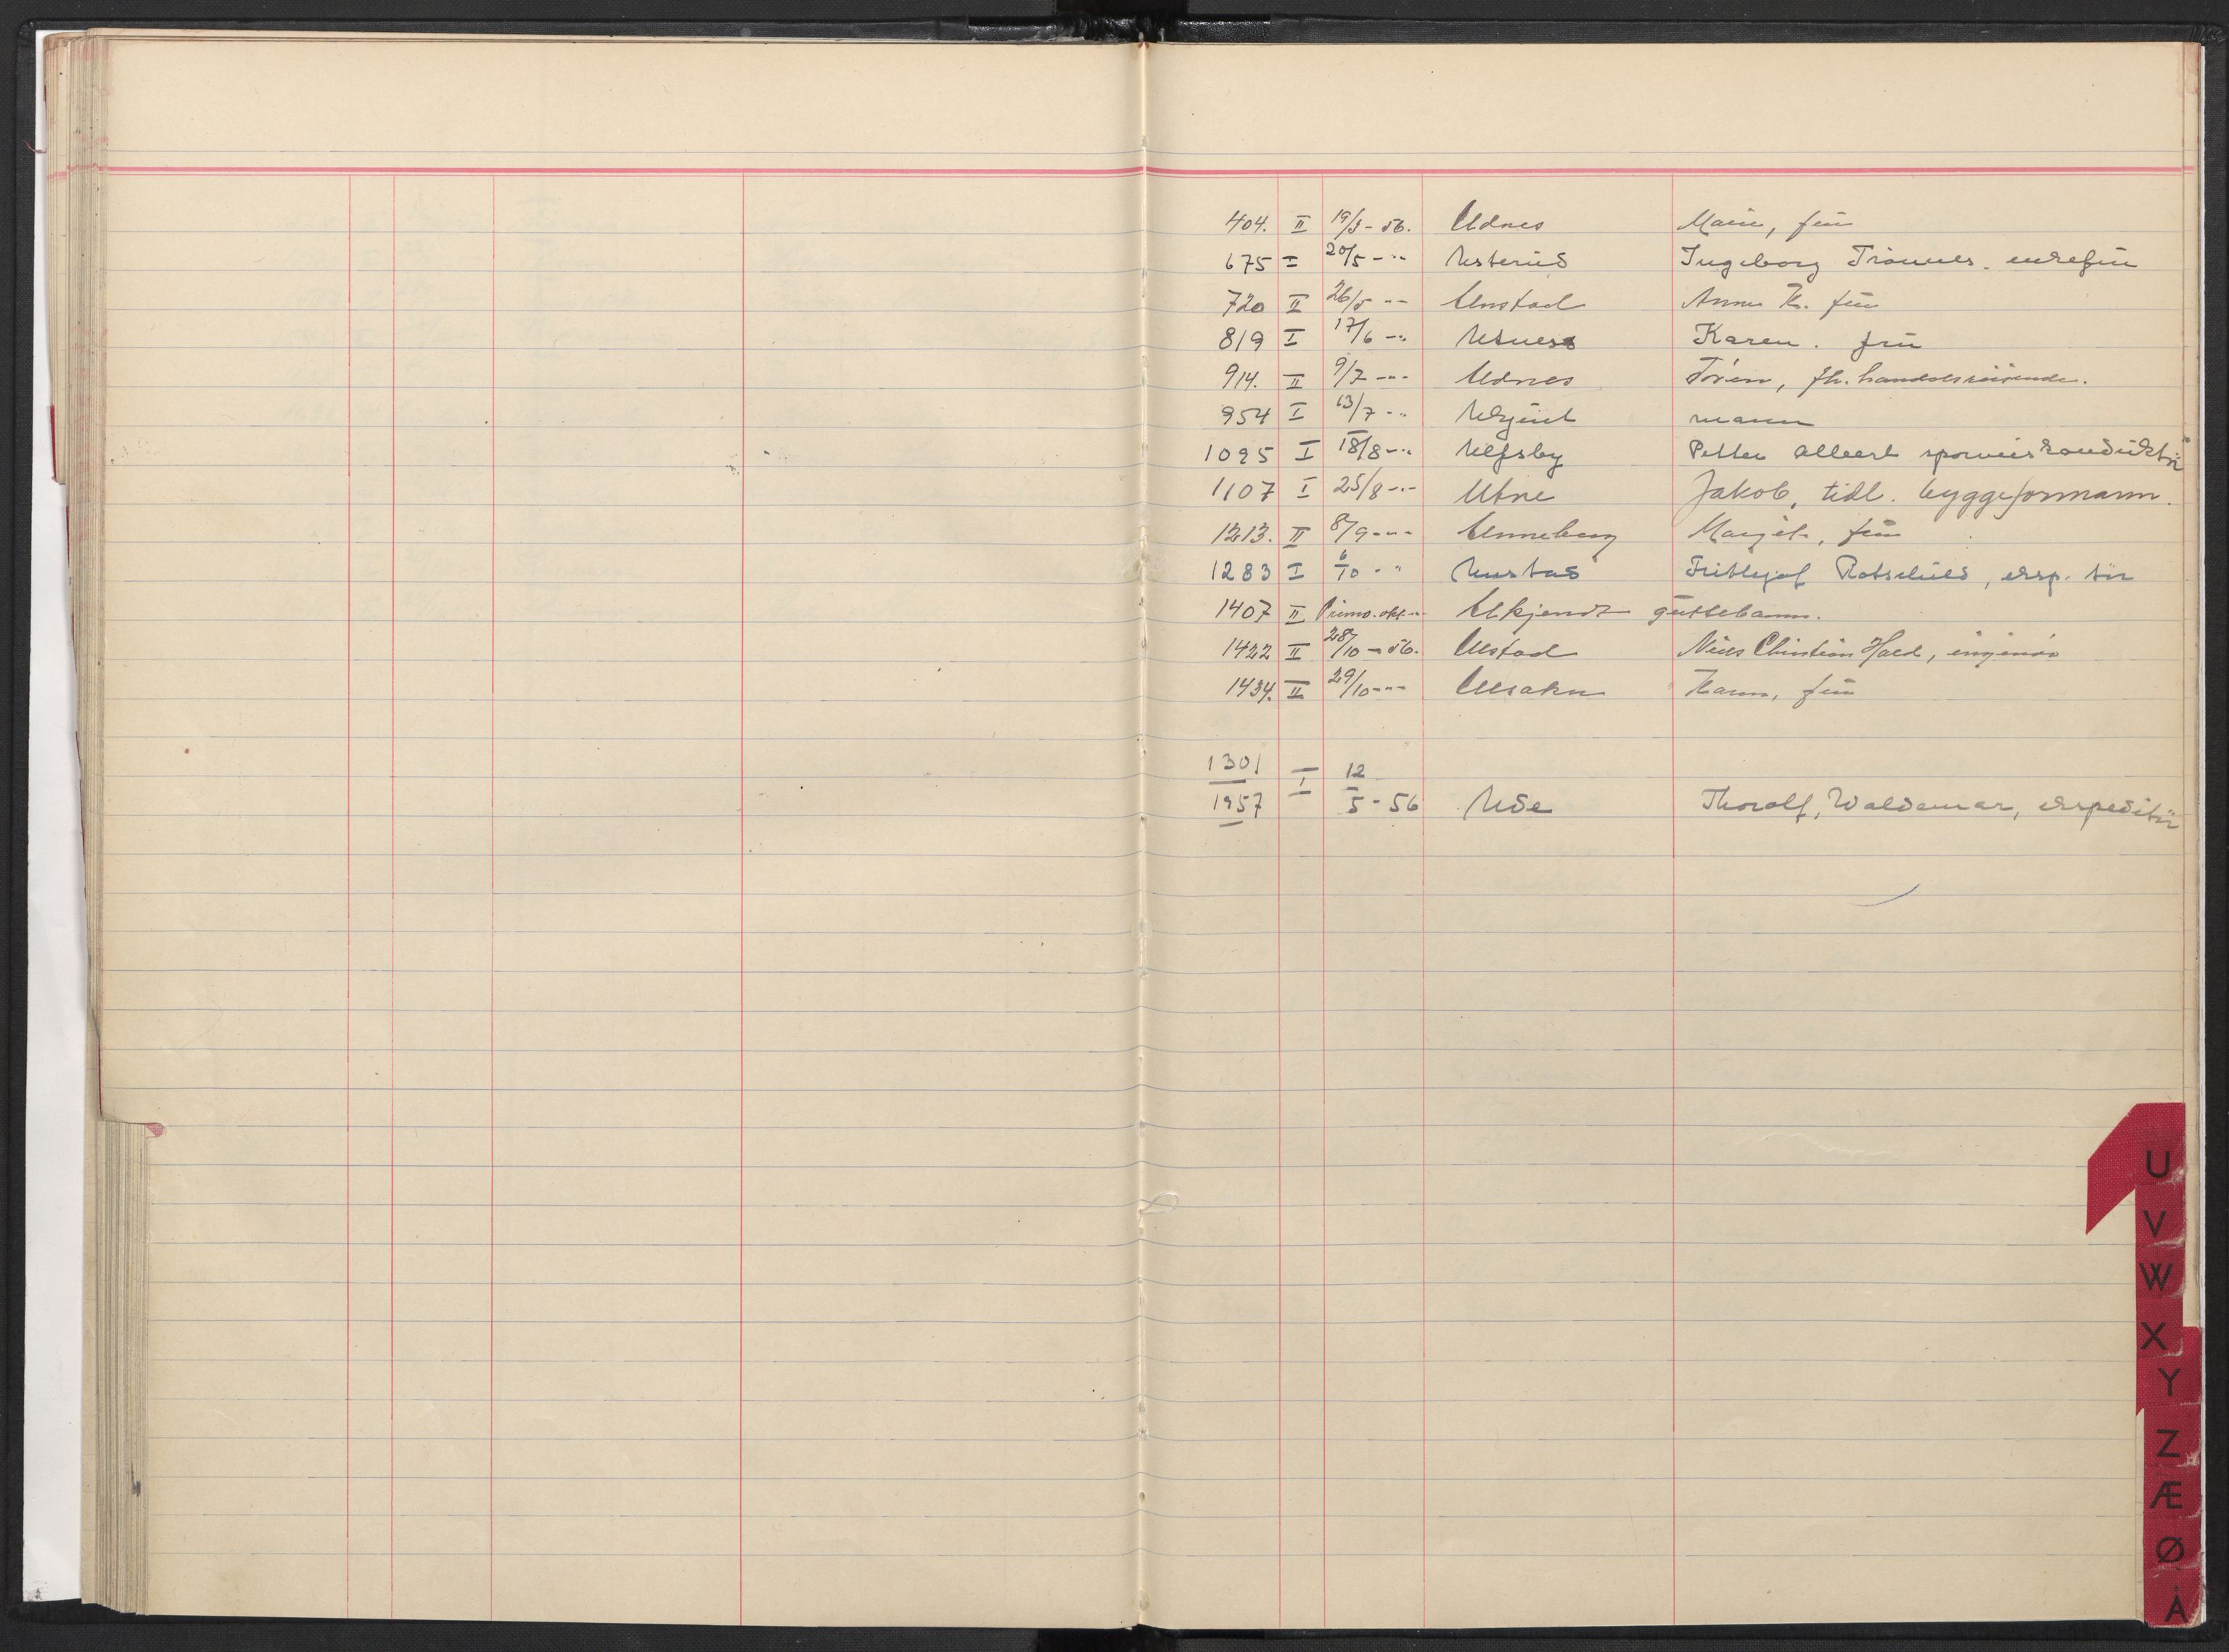 404. II 19/3-56. Udnes Marie, fru
675 I 20/5 - " Usterud Ingeborg Trønnes. enkefru
720 II 26/5 - " - Unstad Anna K. fru
819 I 17/6 - " Utness Karen. fru
914. II 9/7 - " - Udnes fh. handelsreisende.
954 I 13/7 - " Ukjent mann
1095 I 18/8 - " Ulfsby Petter Albert sporveiskonduktør
1107 I 25/8 - " - Utne Jakob, tidl. byggeformann.
1213. II 8/9 - " - Unneberg Margit, fru
1283 I 6/10 - " Unstad Frithjof Rotschild, eksp. tør
1407 II Primo. okt - " - Ukjendt guttebarn.
1422 II 28/10 - 56. Ulstad Niels Christian Hald, ingeniør
1434. II 29/10 - " - Karen, fru
1301
1957 I 12/5-56 Ude Thorolf, Waldemar, ekspeditør
U
V
W
X
Y
Z
Æ
Ø
Å